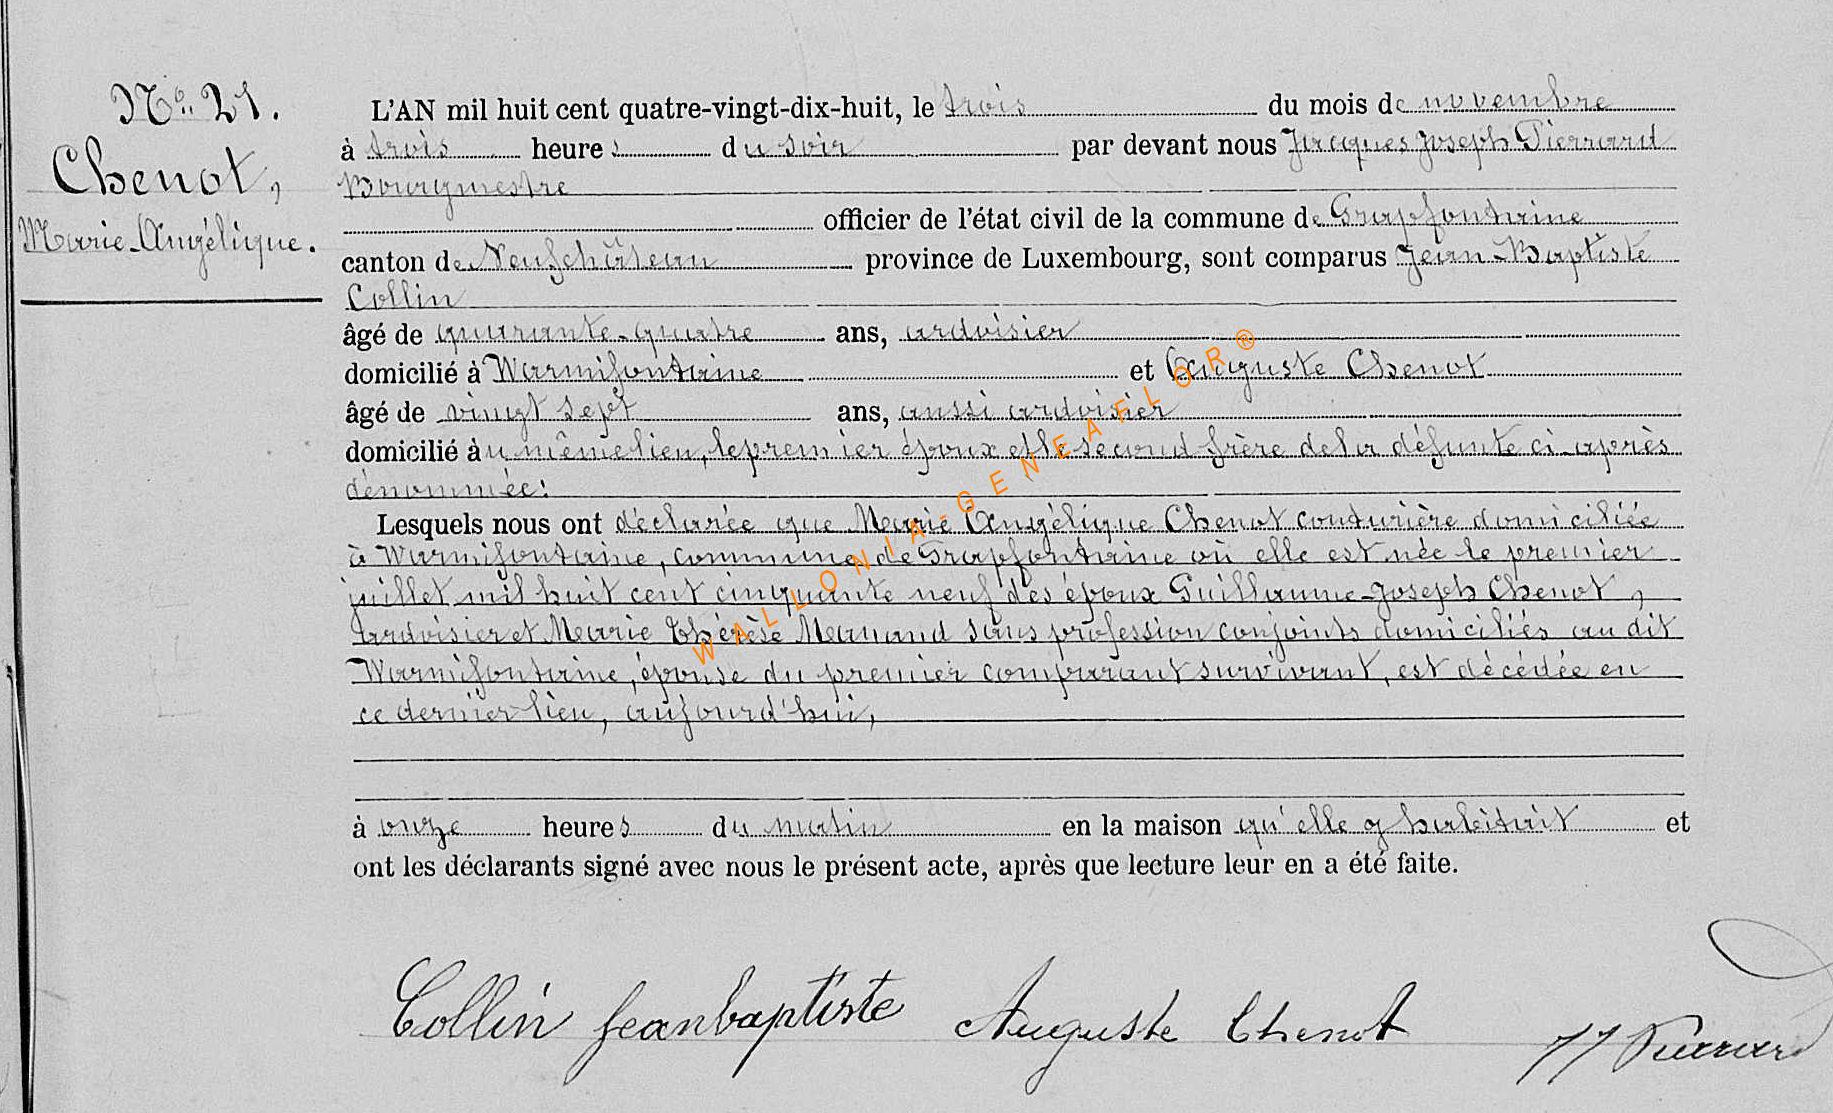 No. 21.
Chenot,
Marie-Angélique.
L'AN mil huit cent quatre-vingt-dix-huit, le trois du mois de novembre
à trois heures du soir par devant nous Jacques Joseph Pierrard
Bourgmestre
officier de l'état civil de la commune de Grapfontaine
canton de Neufchâteau province de Luxembourg, sont comparus Jean-Baptiste
Collin
âgé de quarante-quatre ans, ardoisier
domicilié à Warmifontaine et Auguste Chenot
âgé de vingt sept ans, aussi ardoisier
domicilié au même lieu, le premier époux et le second frère de la défunte ci-après
dénommée:
Lesquels nous ont déclarée que Marie Angélique Chenot couturière domiciliée
à Warmifontaine, commune de Grapfontaine où elle est née le premier
juillet mil huit cent cinquante neuf des époux Guillaume-Joseph Chenot,
ardoisier et Marie Thérèse Manand sans profession conjoints domiciliés au dit
Warmifontaine, épouse du premier comparant survivant, est décédée en
ce dernier lieu, aujourd'hui,
à onze heures du matin en la maison qu'elle y habitait et
ont les déclarants signé avec nous le présent acte, après que lecture leur en a été faite.
Collin jeanbaptiste Auguste Chenot JJ Pierrard
WALLONIA-GENEAFLOR®